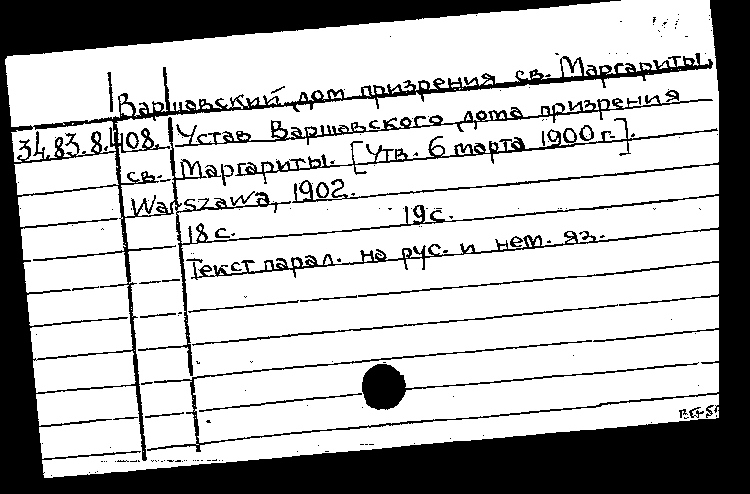 Варшавский дом призрения св. Маргариты.
34.83.8.408. Устав Варшавского дома призрения
св. Маргариты. [Утв. 6 марта 1900 г.].
Warszawa, 1902.
18 с. 19 с.
Текст парал. на рус. и нем. яз.